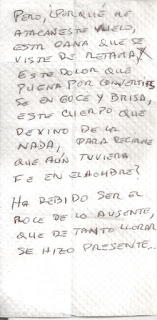 PERO, ¿PORQUÉ ME
ATACANESTE VUELO,
ESTA GANA QUE SE
VISTE DE RETAMA,
ESTE DOLOR QUE
PUGNA POR CONVERTIR
SE EN GOCE Y BRISA,
ESTE CUERPO QUE
DEVINO DE LA
NADA, PARA DECIRME
QUE AÚN TUVIERA
FE EN ELHOMBRE?
HA DEBIDO SER EL
ROCE DE LO AUSENTE,
QUE DE TANTO LLORAR
SE HIZO PRESENTE...